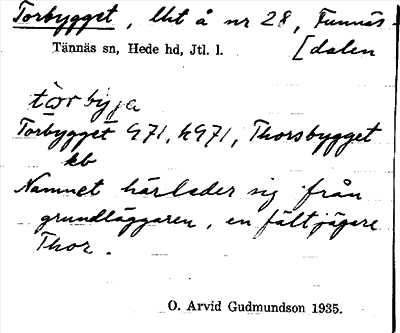 Torbygget, lht å nr 28, Funnäs-
[dalen
Tännäs sn, Hede hd, Jtl. l.
tårbyja
Torbygget 971, h971, Thorsbygget
kb
Namnet härleder sig från
grundläggaren, en fältjägare
Thor.
O. Arvid Gudmundson 1935.